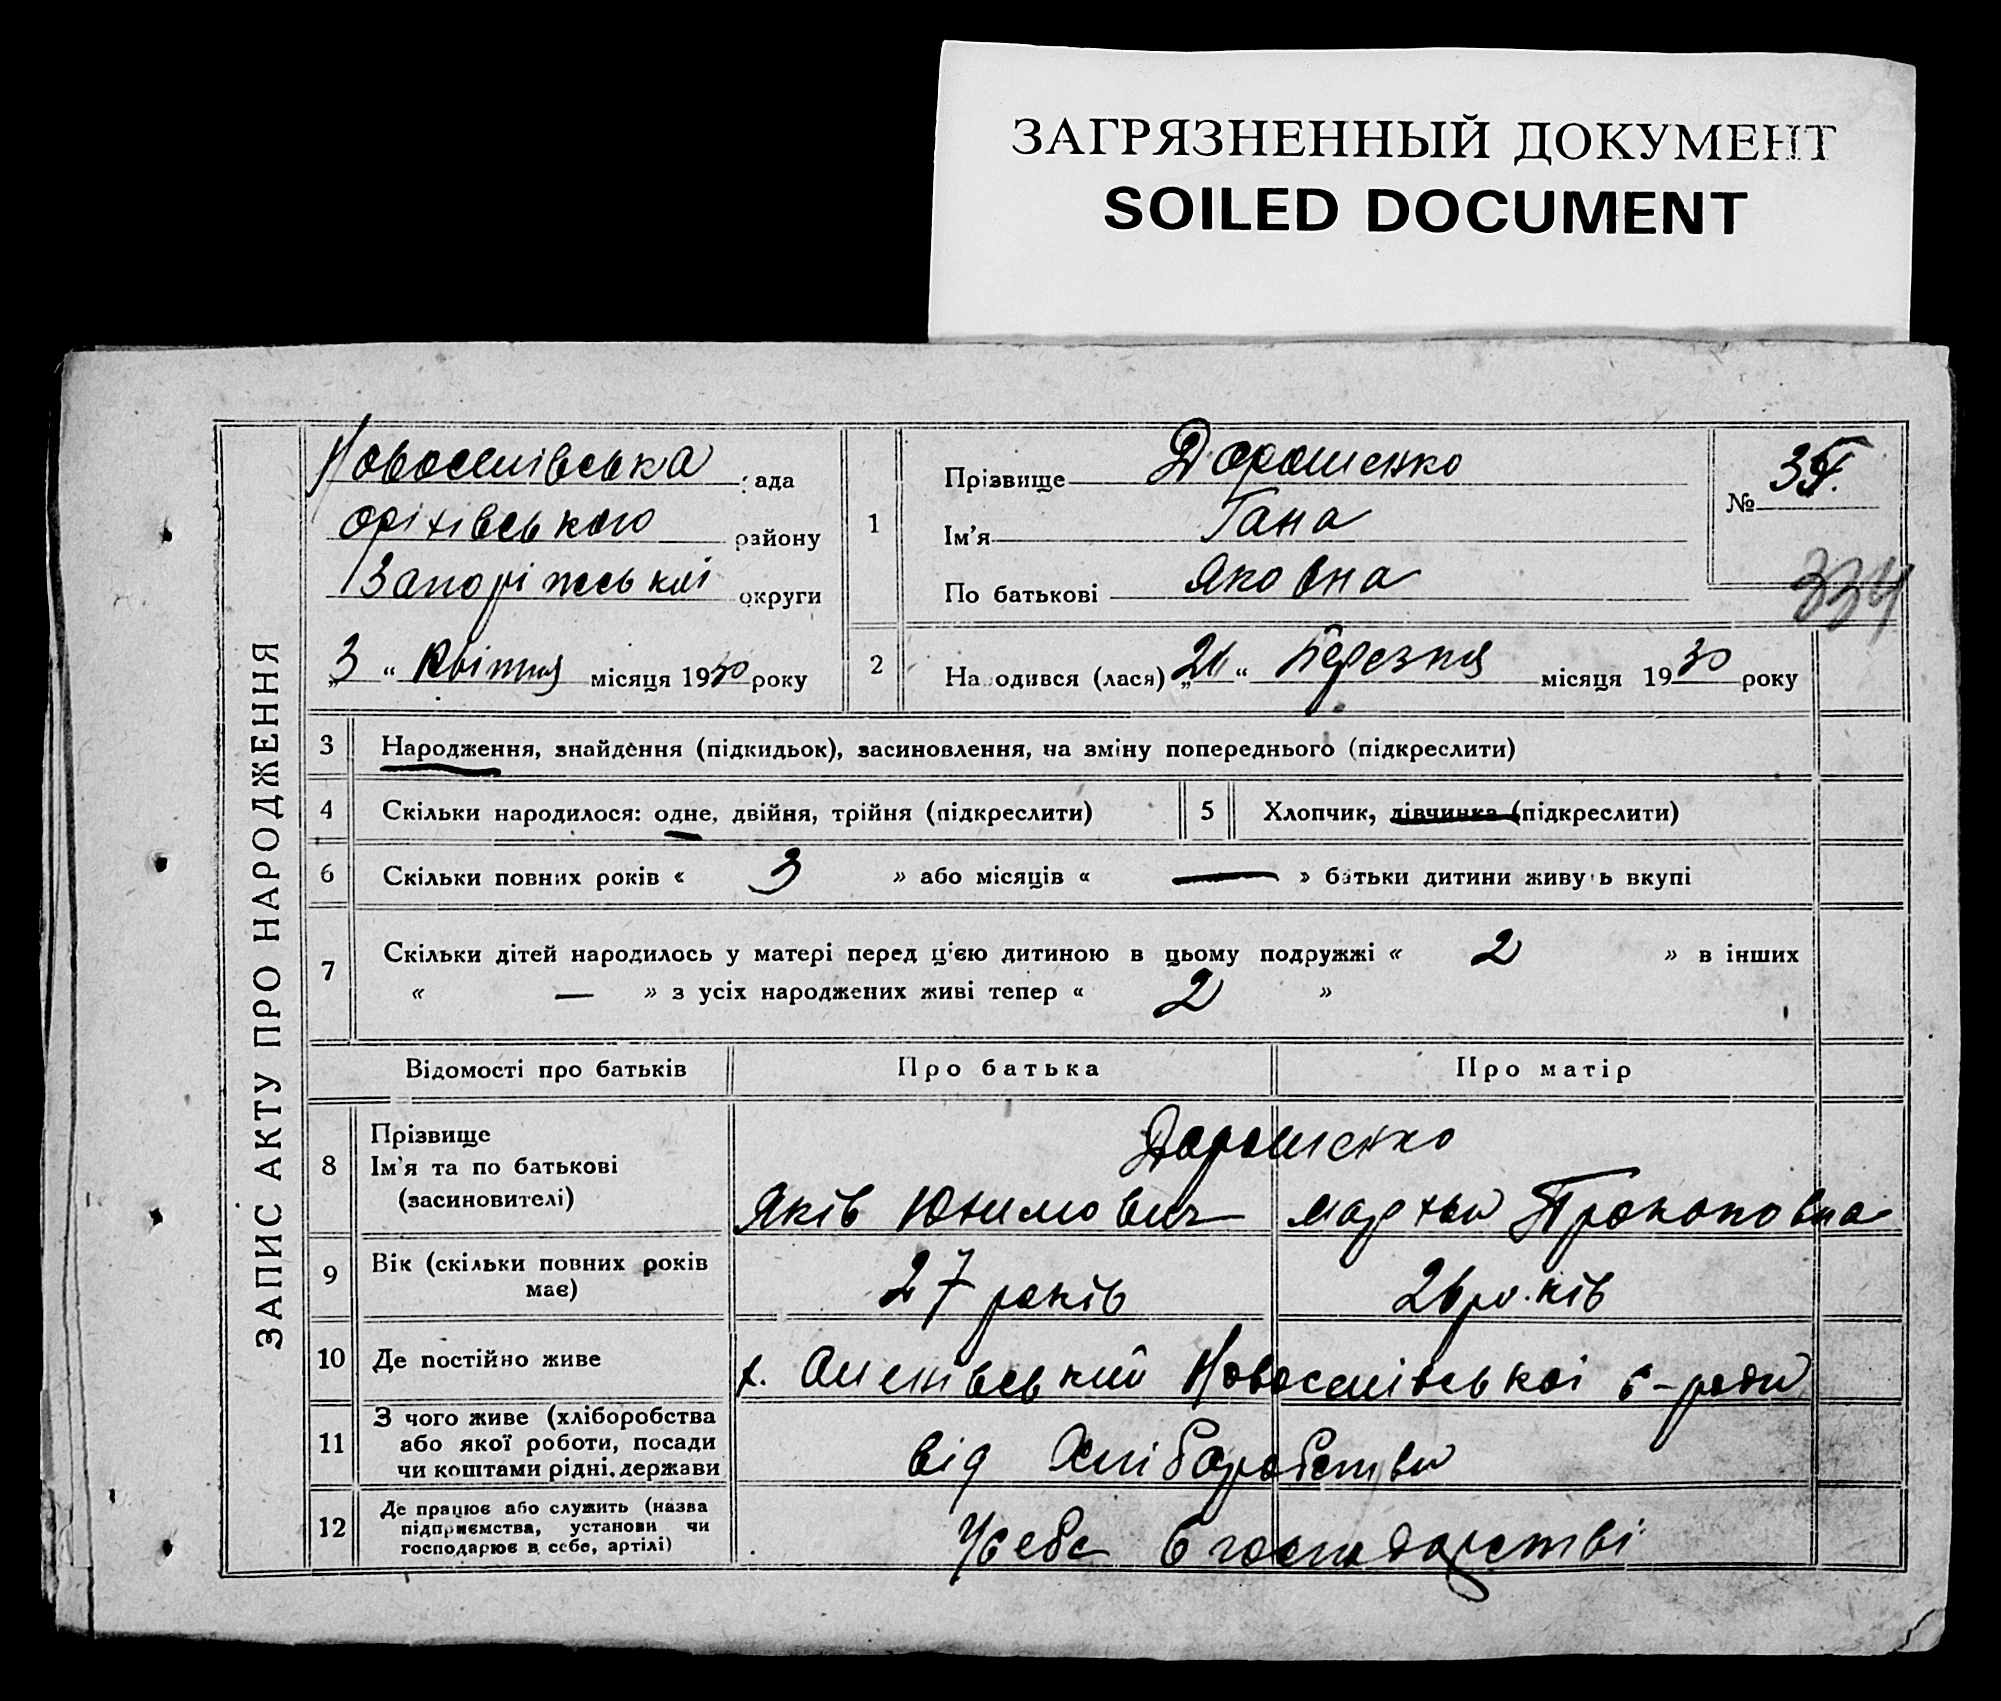 ЗАГРЯЗНЕННЫЙ ДОКУМЕНТ
SOILED DOCUMENT
ЗАПИС АКТУ ПРО НАРОДЖЕННЯ
Новоселівська рада
Оріхівського району
Запоріжської округи
„3“ Квітня місяця 1930 року
1
Прізвище Дорошенко
Ім'я Гана
По батькові Яковна
№
334
2
Народився (лася) „ “ Березня місяця 1930 року
3 Народження, знайдення (підкидьок), засиновлення, на зміну попереднього (підкреслити)
4 Скільки народилося: одне, двійня, трійня (підкреслити) 5 Хлопчик, дівчинка (підкреслити)
6 Скільки повних років « 3 » або місяців « — » батьки дитини живуть вкупі
7 Скільки дітей народилось у матері перед цією дитиною в цьому подружжі « 2 » в інших
« — » з усіх народжених живі тепер « 2 »
Відомості про батьків Про батька Про матір
8 Прізвище
Ім'я та по батькові
(засиновителі)
Дорошенко
Яків Юхимович Мархва Прокоповна
9 Вік (скільки повних років
має)
27 років 26 років
10 Де постійно живе х. Новоселівської с-ради
11 З чого живе (хліборобства
або якої роботи, посади
чи коштами рідні, держави
від Хліборобства
12 Де працює або служить (назва
підприємства, установи чи
господарює в себе, артілі)
У себе в господарстві